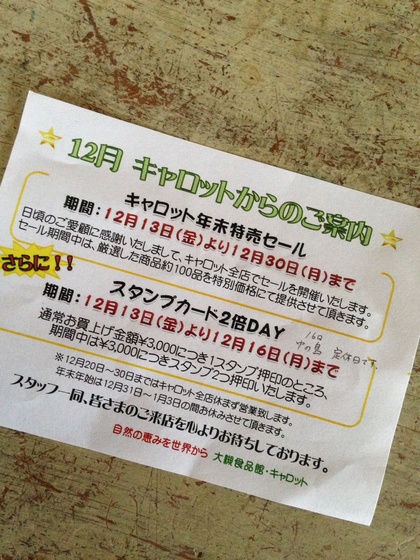 12月 キャロットからのご案内
キャロット年末特売セール
期間：12月13日(金)より12月30日(月)まで
日頃のご愛顧に感謝いたしまして、キャロット全店でセールを開催いたします。
セール期間中は、厳選した商品約100品を特別価格にて提供させて頂きます。
さらに!!
スタンプカード2倍DAY
期間：12月13日(金)より12月16日(月)まで
16日
中の島 定休日です。
通常お買上げ金額¥3,000につき1スタンプ押印のところ、
期間中は¥3,000につきスタンプ2つ押印いたします。
※12月20日～30日まではキャロット全店休まず営業致します。
年末年始は12月31日～1月3日の間お休みさせて頂きます。
スタッフ一同、皆さまのご来店を心よりお待ちしております。
自然の恵みを世界から 大榮食品館・キャロット